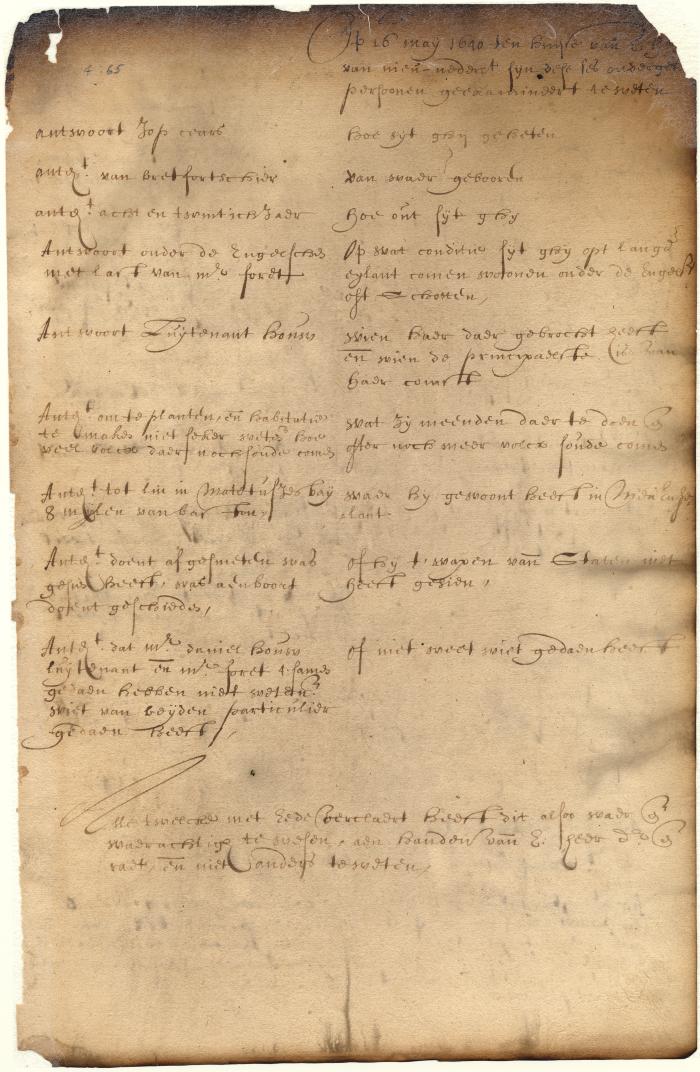 4.65
Op 16 may 1640 ten huyse van
van nieu-nederlt syn dese ses onderget
persoonen geexamineert te weten
antwoort Jop cears
hoe syt ghy geheten
antwt van bretfortschier
van waer gebooren
antwt acht en twintich Jaer
hoe out syt ghy
Antwoort onder de Engelsche
met last van mr foret
Op wat conditie syt ghy opt lange
eylant comen woonen onder de Engels
oft Schotten,
Antwoort Luytenant houw
wien haer daer gebrocht heeft
en wien de principaelste van
haer comst
Antwt om te planten, en habitatie
te maken niet seker wetende hoe
veel volck daer noch soude comen
wat zy meenden daer te doen en
ofter noch meer volcx soude comen
Antwt tot lin in bay
8 mylen van baston,
waer hy gewoont heeft in
lant
Antwt doent afgesmeten was
gesien heeft, was aenboort
doent geschiede,
of hy t wapen van Staten niet
heeft gesien,
Antwt dat mr daniel houw
luytenant en mr foret tsamen
gedaen hebben niet wetende
wiet van beyden particulier
gedaen heeft,
of niet weet wiet gedaen heeft
Alle twelcke met Eede verclaert heeft dit alsoo waer en
waerachtigh te wesen, aen handen van E. heer dr en
raet, en niet anders te weten,